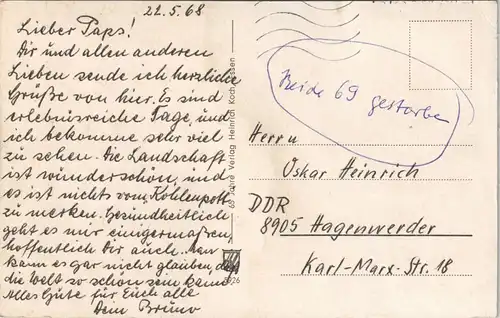 22.5.68
Lieber Paps!
Dir und allen anderen
Lieben sende ich herzliche
Grüße von hier. Es sind
erlebnisreiche Tage, und
ich bekomme sehr viel
zu sehen. Die Landschaft
ist wunderschön, und
es ist nichts vom Kohlenpott
zu merken. Gesundheitlich
geht es mir einigermaßen
hoffentlich Dir auch. Man
kann es gar nicht glauben, daß
die Welt so schön sein kann
Alles Gute für Euch alle
Dein Bruno
Jahre Verlag Heinrich Koch, Essen
Beide 69 gestorben
Herrn
Oskar Heinrich
DDR
8905 Hagenwerder
Karl-Marx-Str. 18